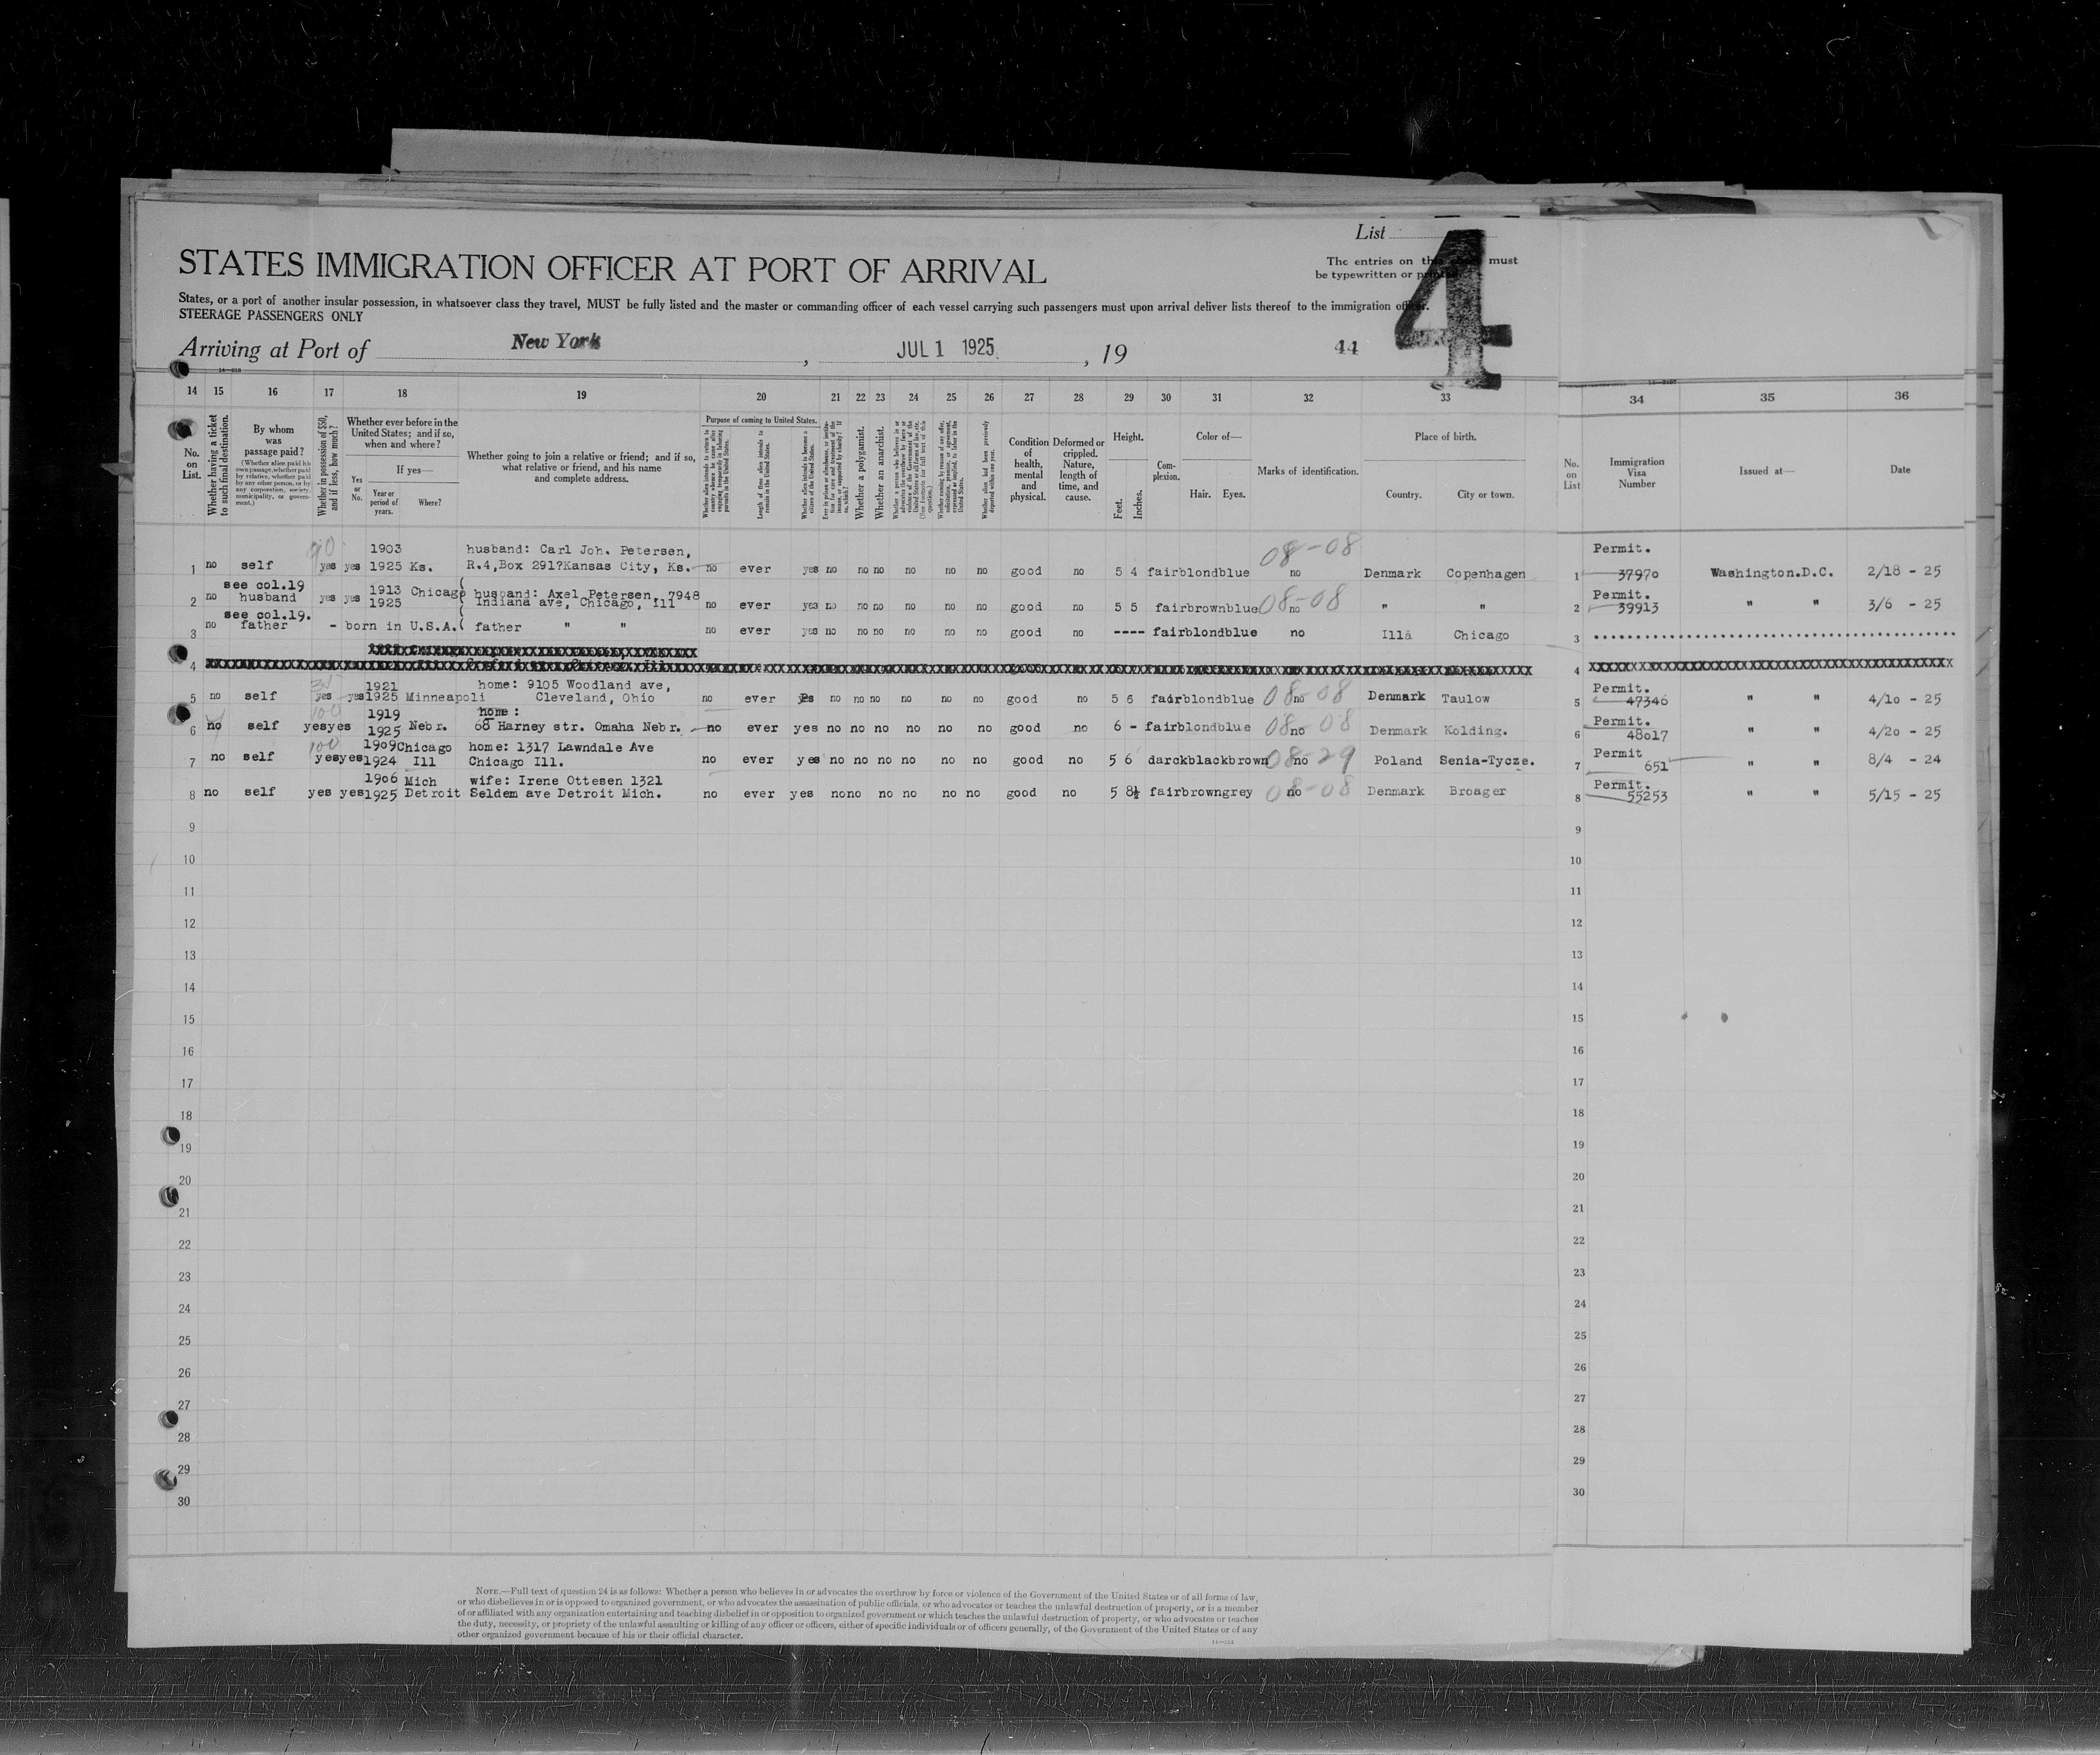 List
4
STATES IMMIGRATION OFFICER AT PORT OF ARRIVAL
The entries on this must
be typewritten or
States, or a port of another insular possession, in whatsoever class they travel, MUST be fully listed and the master or commanding officer of each vessel carrying such passengers must upon arrival deliver lists thereof to the immigration officer.
STEERAGE PASSENGERS ONLY
Arriving at Port of New York , JUL 1 1925 , 19 44
14 15 16 17 18 19 20 21 22 23 24 25 26 27 28 29 30 31 32 33 34 35 36
No. on List.
Whether having a ticket to such final destination.
By whom was passage paid?
(Whether alien paid his own passage, whether paid by relative, whether paid by any other person, or by any corporation, society, municipality, or government.)
Whether in possession of $50, and if less, how much?
Whether ever before in the United States; and if so, when and where?
Yes or No.
If yes—
Year or period of years.
Where?
Whether going to join a relative or friend; and if so, what relative or friend, and his name and complete address.
Purpose of coming to United States.
Length of time alien intends to remain in the United States.
Whether alien intends to become a citizen of the United States.
Whether a polygamist.
Whether an anarchist.
Whether alien had been previously deported within one year.
Condition of health, mental and physical.
Deformed or crippled. Nature, length of time, and cause.
Height.
Feet. Inches.
Complexion.
Color of—
Hair. Eyes.
Marks of identification.
Place of birth.
Country. City or town.
No. on List
Immigration Visa Number
Issued at—
Date
1903 husband: Carl Joh. Petersen, 08-08 Permit.
1 no self yes yes 1925 Ks. R.4,Box 291?Kansas City, Ks. no ever yes no no no no no no good no 5 4 fair blond blue no Denmark Copenhagen 1 37970 Washington.D.C. 2/18 - 25
see col.19 1913 Chicago husband: Axel Petersen, 7948 Permit.
2 no husband yes yes 1925 Indiana ave, Chicago, Ill no ever yes no no no no no no good no 5 5 fair brown blue 08-08 no " " 2 39913 " " 3/6 - 25
see col.19.
3 no father - born in U.S.A. father " " no ever yes no no no no no no good no ---- fair blond blue no Illa Chicago 3
4 4
1921 home: 9105 Woodland ave, Permit.
5 no self yes yes 1925 Minneapoli Cleveland, Ohio no ever yes no no no no no no good no 5 6 fair blond blue 08-08 no Denmark Taulow 5 47346 " " 4/10 - 25
100 1919 home: Permit.
6 no self yes yes 1925 Nebr. 68 Harney str. Omaha Nebr. no ever yes no no no no no no good no 6 - fair blond blue 08-08 no Denmark Kolding. 6 48017 " " 4/20 - 25
100 1909 Chicago home: 1317 Lawndale Ave Permit
7 no self yes yes 1924 Ill Chicago Ill. no ever yes no no no no no no good no 5 6 darck black brown 08-29 no Poland Senia-Tycze. 7 651 " " 8/4 - 24
1906 Mich wife: Irene Ottesen 1321 Permit.
8 no self yes yes 1925 Detroit Seldem ave Detroit Mich. no ever yes no no no no no no good no 5 8½ fair brown grey 08-08 no Denmark Broager 8 55253 " " 5/15 - 25
9 9
10 10
11 11
12 12
13 13
14 14
15 15
16 16
17 17
18 18
19 19
20 20
21 21
22 22
23 23
24 24
25 25
26 26
27 27
28 28
29 29
30 30
NOTE.—Full text of question 24 is as follows: Whether a person who believes in or advocates the overthrow by force or violence of the Government of the United States or of all forms of law,
or who disbelieves in or is opposed to organized government, or who advocates the assassination of public officials, or who advocates or teaches the unlawful destruction of property, or is a member
of or affiliated with any organization entertaining and teaching disbelief in or opposition to organized government or which teaches the unlawful destruction of property, or who advocates or teaches
the duty, necessity, or propriety of the unlawful assaulting or killing of any officer or officers, either of specific individuals or of officers generally, of the Government of the United States or of any
other organized government because of his or their official character.